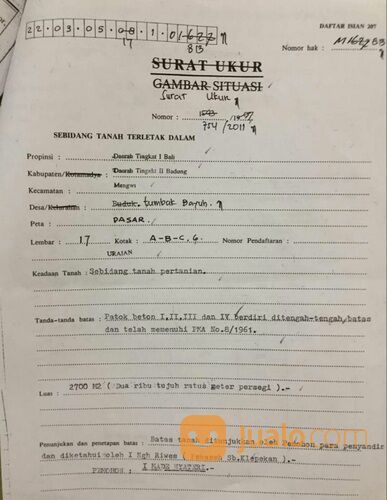 DAFTAR ISIAN 207
22.03.05.08.1.01622
17 813
Nomor hak :
SURAT UKUR
GAMBAR SITUASI
Surat Ukur
Nomor :
754 / 2011
SEBIDANG TANAH TERLETAK DALAM
Propinsi : Daerah Tingkat I Bali
Kabupaten/Kotamadya : Daerah Tingkat II Badung
Kecamatan : Mengwi
Desa/Kelurahan : Buduk. tumbak Bayuh.
Peta : DASAR.
Lembar : 17 Kotak : A-B-C, 6. Nomor Pendaftaran :
URAIAN
Keadaan Tanah : Sebidang tanah pertanian.
Tanda-tanda batas : Patok beton I,II,III dan IV berdiri ditengah-tengah batas
dan telah memenuhi PMA No.8/1961.
Luas : 2700 M2 ( Dua ribu tujuh ratus meter persegi ).-
jualo.com
Penunjukan dan penetapan batas : Batas tanah ditunjukkan oleh Pemohon para penyanding
dan diketahui oleh I Ngh Riwes ( Sb.Klepekan ).-
PEMOHON : I MADE .-